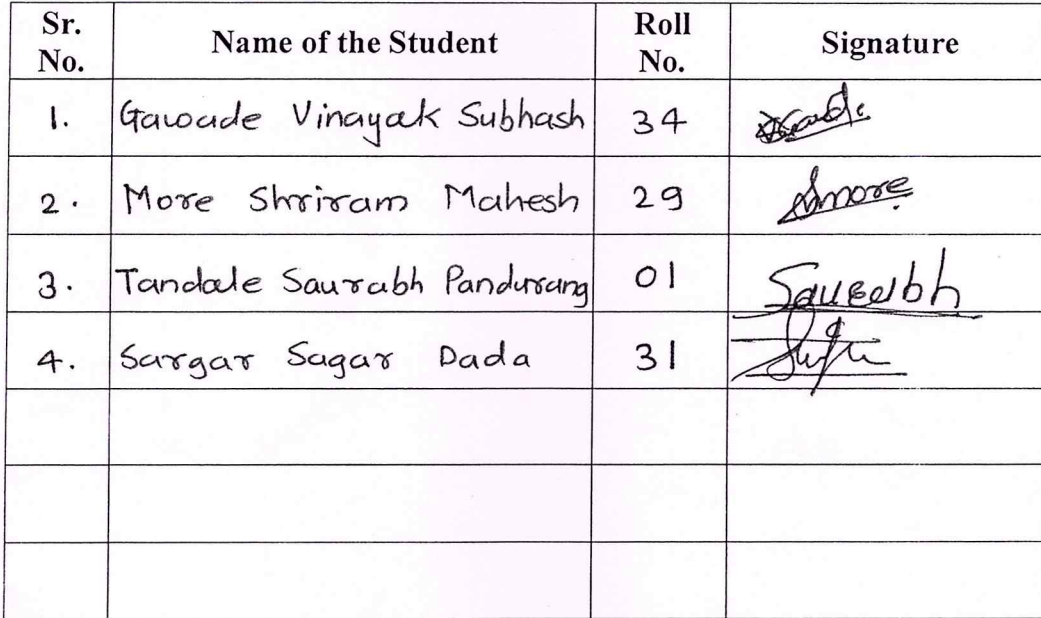 Sr. No. Name of the Student Roll No. Signature
1. Gawade Vinayak Subhash 34
2. More Shriram Mahesh 29 Smore
3. Tandale Saurabh Pandurang 01 Saurabh
4. Sargar Sagar Dada 31